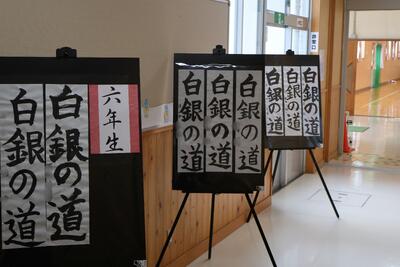 六年生
白銀の道
白銀の道
白銀の道
白銀の道
白銀の道
白銀の道
白銀の道
白銀の道